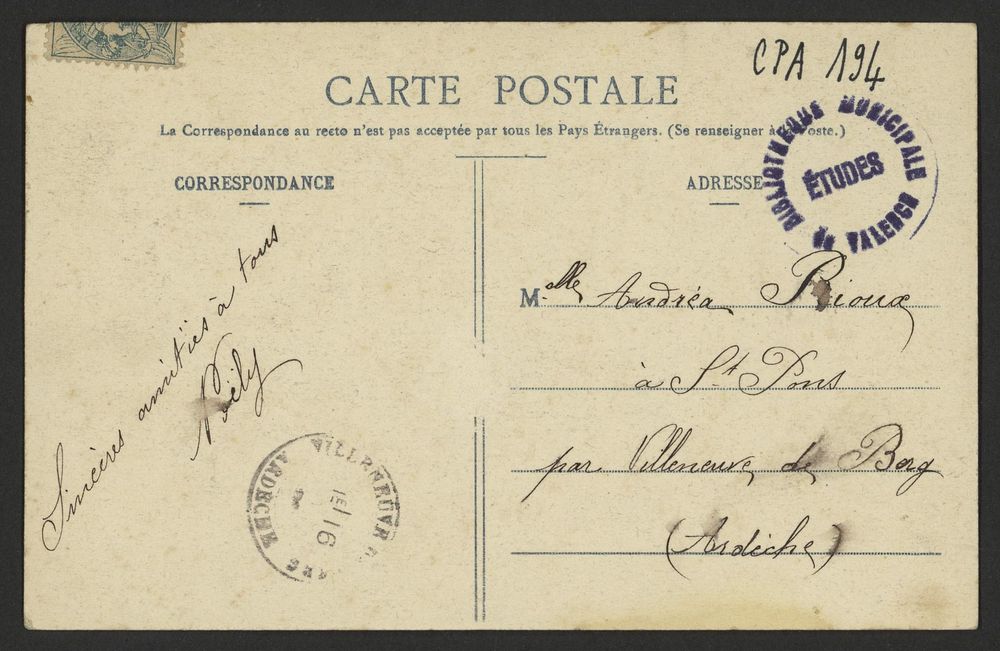 CPA 194
CARTE POSTALE
La Correspondance au recto n'est pas acceptée par tous les Pays Étrangers. (Se renseigner à la Poste.)
CORRESPONDANCE
ADRESSE
BIBLIOTHEQUE MUNICIPALE
ÉTUDES
DE VALENCE
Sincères amitiés à tous
Mlle Andréa Rioux
à St Pons
par Villeneuve de Berg
(Ardèche)
VILLENEUVE
16
ARDECHE